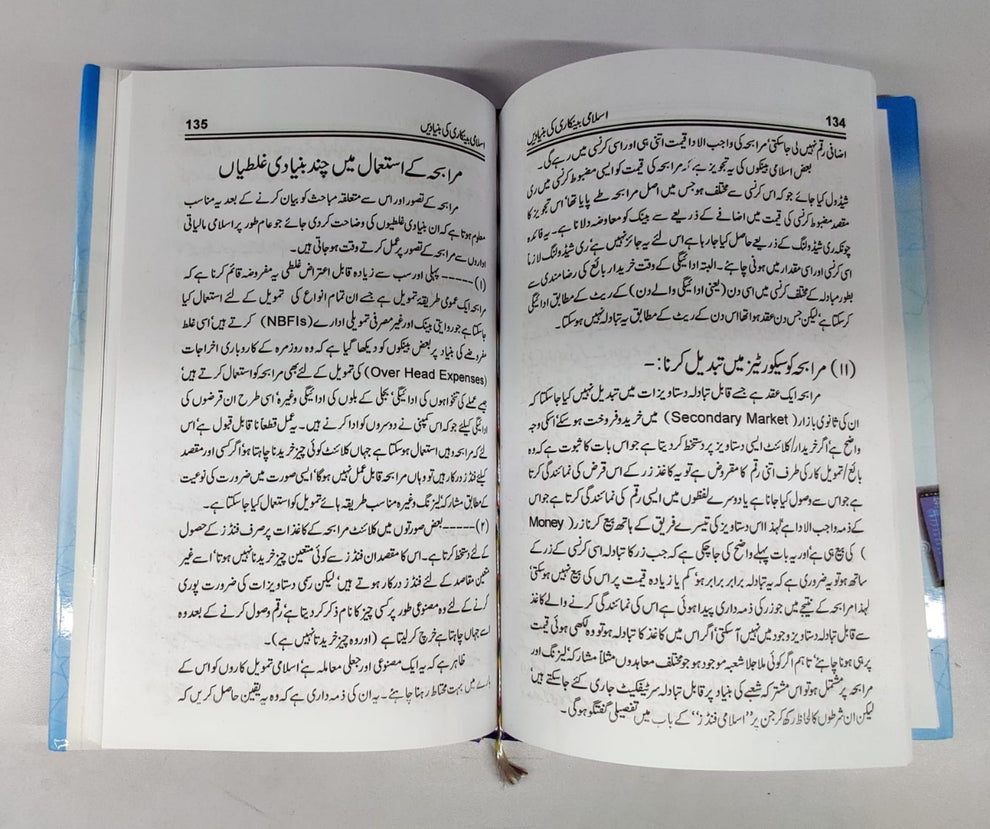 اسلامی بینکاری کی بنیادیں 134
اضافی رقم نہیں لی جاسکتی' مرابحہ کی واجب الادا قیمت اتنی ہی اور اسی کرنسی میں رہے گی۔
بعض اسلامی بینکوں کی یہ تجویز ہے' کہ مرابحہ کی قیمت کو ایسی مضبوط کرنسی میں ری
شیڈول کیا جائے جو کہ اس کرنسی سے مختلف ہو جس میں اصل مرابحہ طے پایا تھا' اس تجویز کا
مقصد مضبوط کرنسی کی قیمت میں اضافے کے ذریعے سے بینک کو معاوضہ دلانا ہے۔ یہ فائدہ
چونکہ ری شیڈولنگ کے ذریعے حاصل کیا جارہا ہے اس لئے یہ جائز نہیں ہے' ری شیڈولنگ لازماً
اسی کرنسی اور اسی مقدار میں ہونی چاہئے۔ البتہ ادائیگی کے وقت خریدار بائع کی رضامندی سے
بطور مبادلہ کے مختلف کرنسی میں اسی دن (یعنی ادائیگی والے دن) کے ریٹ کے مطابق ادائیگی
کرسکتا ہے' لیکن جس دن عقد ہوا تھا اس دن کے ریٹ کے مطابق یہ تبادلہ نہیں ہوسکتا۔
(۱۱) مرابحہ کو سیکورٹیز میں تبدیل کرنا :–
مرابحہ ایک عقد ہے جسے قابل تبادلہ دستاویزات میں تبدیل نہیں کیا جاسکتا کہ
ان کی ثانوی بازار (Secondary Market) میں خرید وفروخت ہوسکے' اسکی وجہ
واضح ہے' اگر خریدار/ کلائنٹ ایسی دستاویز پر دستخط کردیتا ہے جو اس بات کا ثبوت ہے کہ وہ
بائع/ تمویل کار کی طرف اتنی رقم کا مقروض ہے تو یہ کاغذ زر کے اس قرض کی نمائندگی کرتا
ہے جو اس سے وصول کیا جانا ہے یا دوسرے لفظوں میں ایسی رقم کی نمائندگی کرتا ہے جو اس
کے ذمہ واجب الادا ہے' لہٰذا اس دستاویز کی تیسرے فریق کے ہاتھ بیع کرنا زر (Money
) کی بیع ہی ہے' اور یہ بات پہلے واضح کی جاچکی ہے کہ جب زر کا تبادلہ اسی کرنسی کے زر کے
ساتھ ہو تو یہ ضروری ہے کہ یہ تبادلہ برابر برابر ہو' کم یا زیادہ قیمت پر اس کی بیع نہیں ہوسکتی'
لہٰذا مرابحہ کے نتیجے میں جو زر کی ذمہ داری پیدا ہوئی ہے اس کی نمائندگی کرنے والے کاغذ
سے قابل تبادلہ دستاویز وجود میں نہیں آسکتی' اگر اس میں کاغذ کا تبادلہ ہو تو وہ لکھی ہوئی قیمت
پر ہی ہونا چاہئے' تاہم اگر کوئی ملا جلا شعبہ موجود ہو جو مختلف معاہدوں مثلاً مشارکہ' لیزنگ اور
مرابحہ پر مشتمل ہو تو اس مشترکہ شعبے کی بنیاد پر قابل تبادلہ سرٹیفکیٹ جاری کئے جاسکتے ہیں'
لیکن ان شرطوں کا لحاظ رکھ کر جن پر ''اسلامی فنڈز'' کے باب میں تفصیلی گفتگو ہوگی۔
اسلامی بینکاری کی بنیادیں 135
مرابحہ کے استعمال میں چند بنیادی غلطیاں
مرابحہ کے تصور اور اس سے متعلقہ مباحث کو بیان کرنے کے بعد یہ مناسب
معلوم ہوتا ہے کہ ان بنیادی غلطیوں کی وضاحت کردی جائے جو عام طور پر اسلامی مالیاتی
اداروں سے مرابحہ کے تصور پر عمل کرتے وقت ہوجاتی ہیں۔
(۱)----- پہلی اور سب سے زیادہ قابل اعتراض غلطی یہ مفروضہ قائم کرنا ہے کہ
مرابحہ ایک عمومی طریقۂ تمویل ہے جسے ان تمام انواع کی تمویل کے لئے استعمال کیا
جاسکتا ہے جو روایتی بینک اور غیر مصرفی تمویلی ادارے (NBFIs) کرتے ہیں' اسی غلط
مفروضے کی بنیاد پر بعض بینکوں کو دیکھا گیا ہے کہ وہ روزمرہ کے کاروباری اخراجات
(Over Head Expenses) کی تمویل کے لئے بھی مرابحہ کو استعمال کرتے ہیں'
جیسے عملے کی تنخواہوں کی ادائیگی' بجلی کے بلوں کی ادائیگی وغیرہ' اسی طرح ان قرضوں کی
ادائیگی کیلئے جو کہ اس کمپنی نے دوسروں کو ادا کرنے ہیں۔ یہ عمل قطعاً نا قابل قبول ہے' اس
لئے کہ مرابحہ وہیں استعمال ہوسکتا ہے جہاں کلائنٹ کوئی چیز خریدنا چاہتا ہو' اگر کسی اور مقصد
کیلئے فنڈز درکار ہیں تو وہاں مرابحہ قابل عمل نہیں ہوگا' ایسی صورت میں ضرورت کی نوعیت
کے مطابق مشارکہ' لیزنگ وغیرہ مناسب طریقہ ہائے تمویل کو استعمال کیا جاسکتا ہے۔
(۲)-----بعض صورتوں میں کلائنٹ مرابحہ کے کاغذات پر صرف فنڈز کے حصول
کے لئے دستخط کرتا ہے۔ اس کا مقصد ان فنڈز سے کوئی متعین چیز خریدنا نہیں ہوتا' اسے غیر
متعین مقاصد کے لئے فنڈز درکار ہوتے ہیں' لیکن رسمی دستاویزات کی ضرورت پوری
کرنے کے لئے وہ مصنوعی طور پر کسی چیز کا نام ذکر کردیتا ہے' رقم وصول کرنے کے بعد وہ
اسے جہاں چاہتا ہے خرچ کرلیتا ہے (اور وہ چیز خریدتا نہیں ہے)۔
ظاہر ہے کہ یہ ایک مصنوعی اور جعلی معاملہ ہے' اسلامی تمویل کاروں کو اس کے
بارے میں بہت محتاط رہنا چاہئے۔ یہ ان کی ذمہ داری ہے کہ وہ یہ یقین حاصل کریں کہ